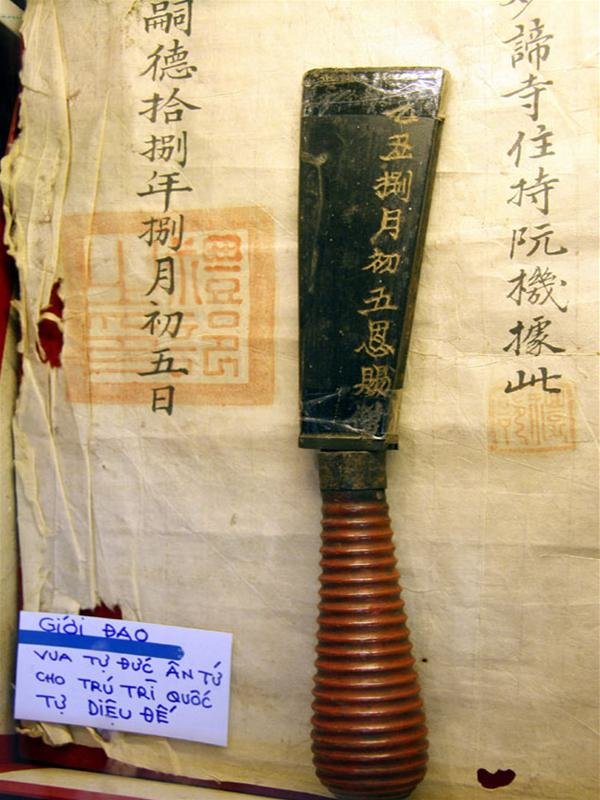 妙諦寺住持阮機據此
乙丑捌月初五恩賜
嗣德拾捌年捌月初五日
禮部
之印
GIỚI ĐAO
VUA TỰ ĐỨC ÂN TỨ
CHO TRÚ TRÌ QUỐC
TỰ DIỆU ĐẾ